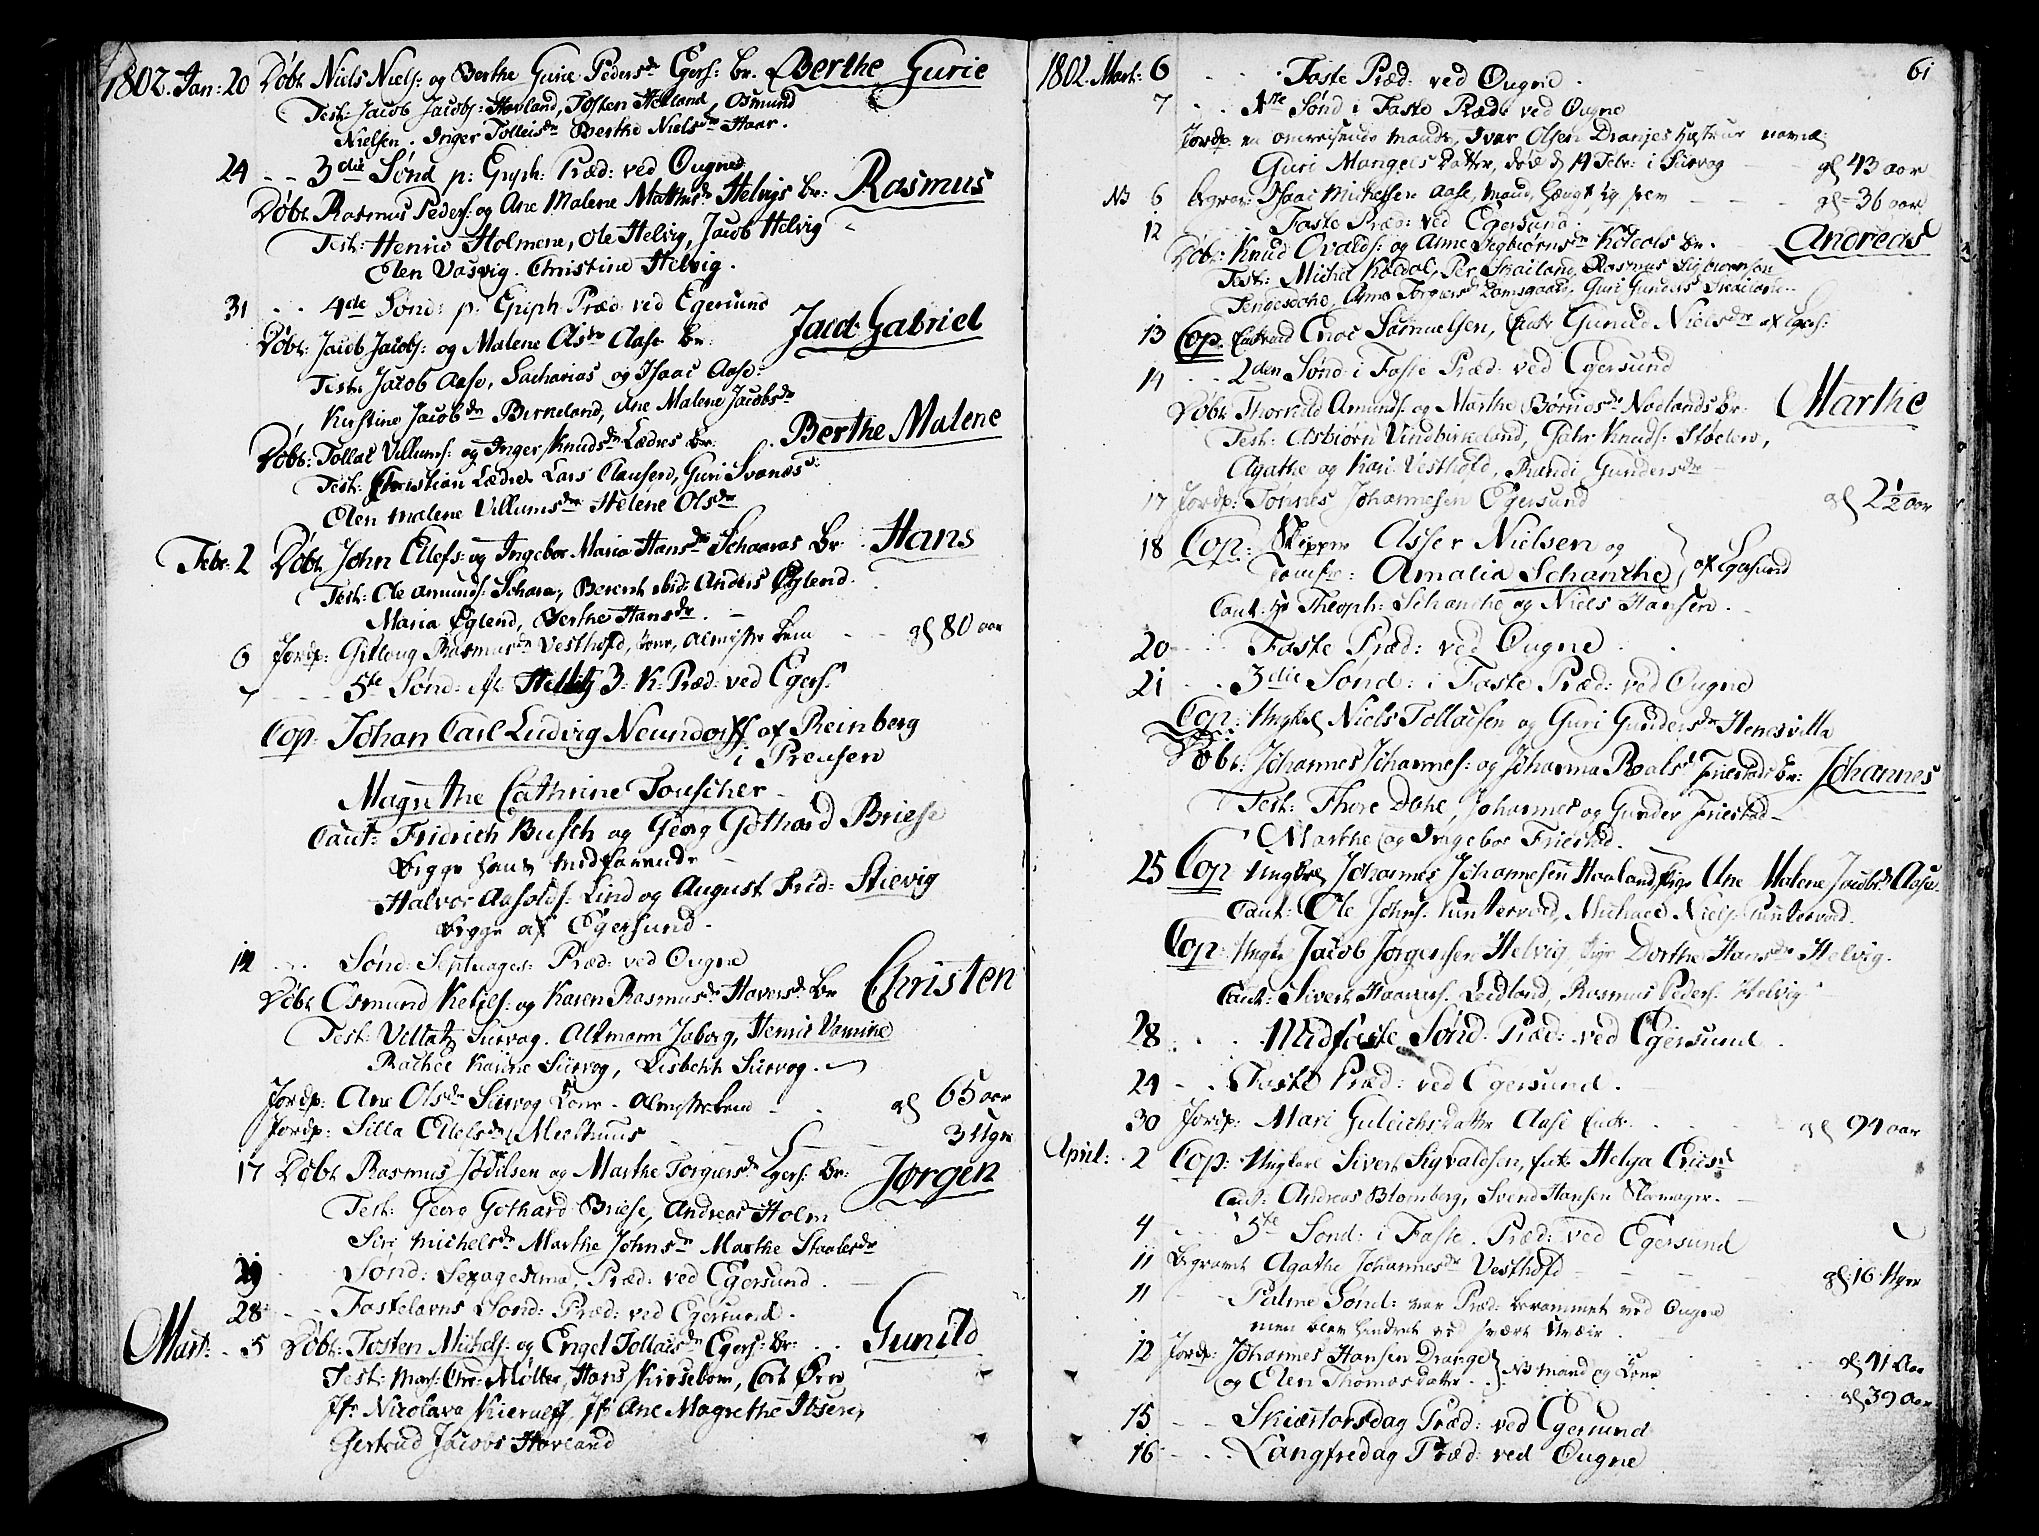 1802. Jan: 20 Døbt Niels Niels: og Berthe Gurie Peders dr Egers: br. Berthe Gurie
Test: Jacob Jacobs: Hovland, Tosten Hetland, Osmund
Nielsen. Inger Tolleis dr Berthe Niels dr Haar.
24 - - 3die Sønd p: Epiph: Præd: ved Ougne
Døbt Rasmus Peders: og Ane Malene Mathis dr Helvigs br: Rasmus
Test: Henric Holmene, Ole Helvig, Jacob Helvig
Elen Vasvig. Christine Helvig.
31 - - 4de Sønd: p. Epiph. Præd. ved Egersund
Døbt: Jacob Jacobs: og Malene Ols dr Aase br: Jacob Gabriel
Test: Jacob Aase, Zacharias og Isaac Aase:
Kirstine Jacob dr Birkeland, Ane Malene Jacobs dr
Døbt: Tollac Villums: og Inger Knuds dr Lædres br: Berthe Malene
Test: Christian Lædre Lars Clausen, Guri Svanæs:
Elen Malene Villums dr Helene Ols dr
Febr. 2 Døbt John Ellefs: og Ingebor Maria Hans dr Schaaras br. Hans
Test: Ole Amunds: Schara, Berent ibid: Anders Eglend.
Maria Eglend, Berthe Hans dr. -
6 Jordp: Gitloug Rasmus dr Vesthofd, Kone, Almisse Lem - - gl 80 aar
7 - - 5te Sønd: Præd: ved Egers.
Cop: Johan Carl Ludvig Neundorff af Reinberg
i Preusen
Magrethe Cathrine Touscher -
Caut: Fridrich Busch og Georg Gothard Briese
begge hans Medfarende -
Halvor Aasolds: Lind og August Frid: Stievig
begge af Egersund.
14 - - Sønd: Septuages: Præd: ved Ougne
Døbt Osmund Keties: og Karen Rasmus dr Havers dr br Christen
Test: Villatz Sirevog. Altmann Joborg, Henric Vamme
Rachel Karine Sirevog, Lisbeth Sirevog.
Jordp: Ane Ols dr Sirevog Kone - Almisselem - - gl 65 aar
Jordp: Silla Ellefs dr Mælhuus - - - 3 Uger
17 Døbt Rasmus Jødilsen og Marthe Torgiers dr Egers: br: Jørgen
Test: Georg Gothard Briese, Andreas Holm
Siri Michels dr Marthe Johns dr Marthe Staales dr
Sønd: Sexagesima, Præd: ved Egersund.
28 - - Fastelavns Sønd: Præd: ved Egersund.
Mart: - 5 Døbt: Tosten Michels: og Engel Tollacs dr Egers: br: Gunild
Test: Mons: Chr: Møller, Hans Kirsebom, Cort Øre
Jfr Nicolava Kierulff, Jfr Ane Magrethe Ibsen,
Gertrud Jacobs Hovland
61
1802. Mart: 6 - - Faste Præd: ved Ougne -
7 - - 1ste Sønd i Faste Præd: ved Ougne
Jordp: en omreisende mands, Ivar Olsen Dranjes Hustrue navnl:
Guri Mangels Datter, død d 14 Febr: i Sirevog gl 43 aar
NB 6 begrav: Isaac Michelsen Aase, Mand, hængt sig selv - - - gl - 36 aar
12 - Faste Præd: ved Egersund
Døbt: Knud Ovalds: og Anne Sigbiørns dr Koldals br. Andreas
Test: Michel Koldal, Per Skailand, Rasmus Sigbiørnsen
Tendesdahl, Anna Torgiers dr Lomsgaard, Guri Gunders Skailand
13 Cop Enkmand Enoc Samuelsen, Enke Gunild Niels dr af Egers:
14 - - 2den Sønd: i Faste Præd: ved Egersund
Døbt Thorvild Amunds: og Marthe Børnils dr Nodlands br: Marthe
Test: Asbiørn Vindbirkeland, Gabr: Knuds: Støelen,
Agathe og Kari Vesthofd, Randi Gunders dr
17 Jordp: Tønnes Johannesen Egersund gl 2 1/2 aar
18 Cop: Skipper Asser Nielsen og
Jomfr: Amalia Schanche } af Egersund
Caut: Hr Theoph: Schanche og Niels Hansen.
20 - - Faste Præd: ved Ougne
21 - - 3die Sønd: i Faste Præd: ved Ougne
Cop: Ungkl Niels Tollacsen og Guri Gunders dr Henesvilla
Døbt: Johannes Johannes: og Johanna Roals dr Friestads br: Johannes
Test: Thore Dahl, Johannes og Gunder Friestad -
Marthe og Ingebor Friestad.
25 Cop Ungkarl Johannes Johannesen Haaland, Pige Ane Malene Jacobs dr Aase.
Caut: Ole Johns: Puntervold, Michael Niels: Puntervold.
Cop: Ungk: Jacob Jørgensen Helvig, Pige Dorthe Hans dr Helvig.
Caut: Sivert Haavars. Leidland, Rasmus Peders. Helvig -
28 - - Midfaste Sønd. Præd: ved Egersund.
24 - - Faste Præd: ved Egersund.
30 Jordp: Mari Guleichs datter Aase Enke - - - gl 94 aar
April: 2 Cop: Ungkarl Sivert Sigvaldsen, Enke Helga Erics d
Caut: Andreas Blomberg, Svend Hansen Skomager.
4 - - 5te Sønd: i Faste. Præd: ved Egersund
11 Begravet Agathe Johannes dr Vesthofd - - - gl: 16 Uger
11 - - Palme Sønd: var Præd: berammet ved Ougne
men blev hindret ved svært Uveir.
12 Jordp: Johannes Hansen Drange
og Elen Thomasdatter - } NB Mand og Kone gl 41 Aar
gl 39 Aar
15 - - Skiærtorsdag Præd: ved Egersund
16 - - Langfredag Præd: ved Ougne